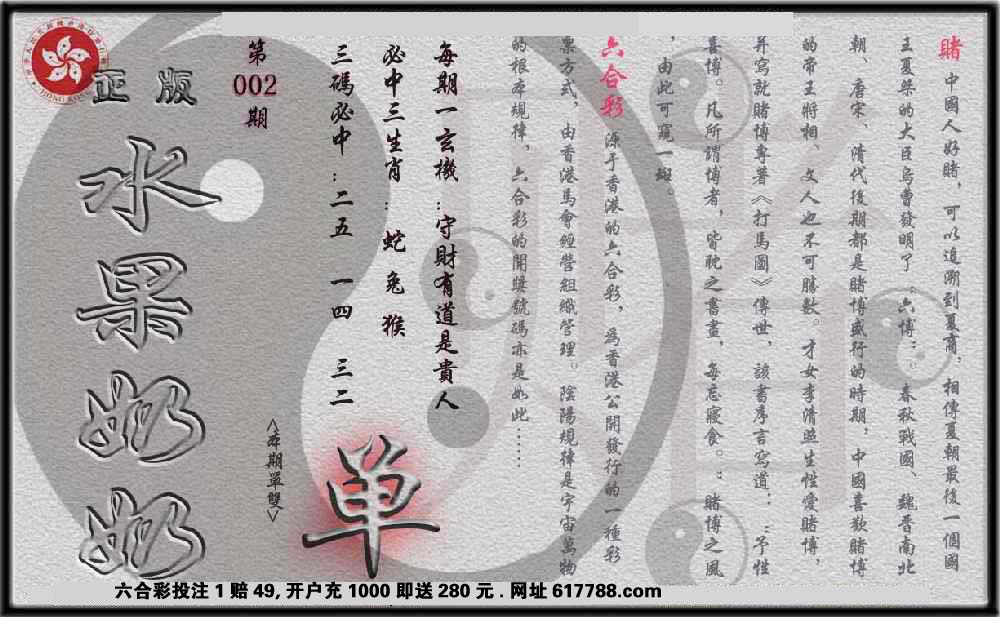 賭 中國人好賭，可以追溯到夏商：相傳夏朝最後一個國
王夏桀的大臣烏曹發明了“六博”：春秋戰國、魏晉南北
朝、唐宋、清代後期都是賭博盛行的時期，中國喜歡賭博
的帝王將相、文人也不可勝數 才女李清照生性愛賭博，
并寫就賭博專著《打馬圖》傳世，該書序言寫道：“予性
喜博。凡所謂博者，皆耽之晝晝，每忘寢食。”賭博之風
，由此可窺一斑。
六合彩 源于香港的六合彩，為香港公開發行的一種彩
票方式，由香港馬會經營組織管理。陰陽規律是宇宙萬物
的根本規律，六合彩的開獎號碼亦是如此……
每期一玄機：守財有道是貴人
必中三生肖：蛇 兔 猴
三碼必中：二五 一四 三二
第
002
期
正版
水果奶奶
<本期單雙>
单
六合彩投注1赔49,开户充1000即送280元.网址617788.com